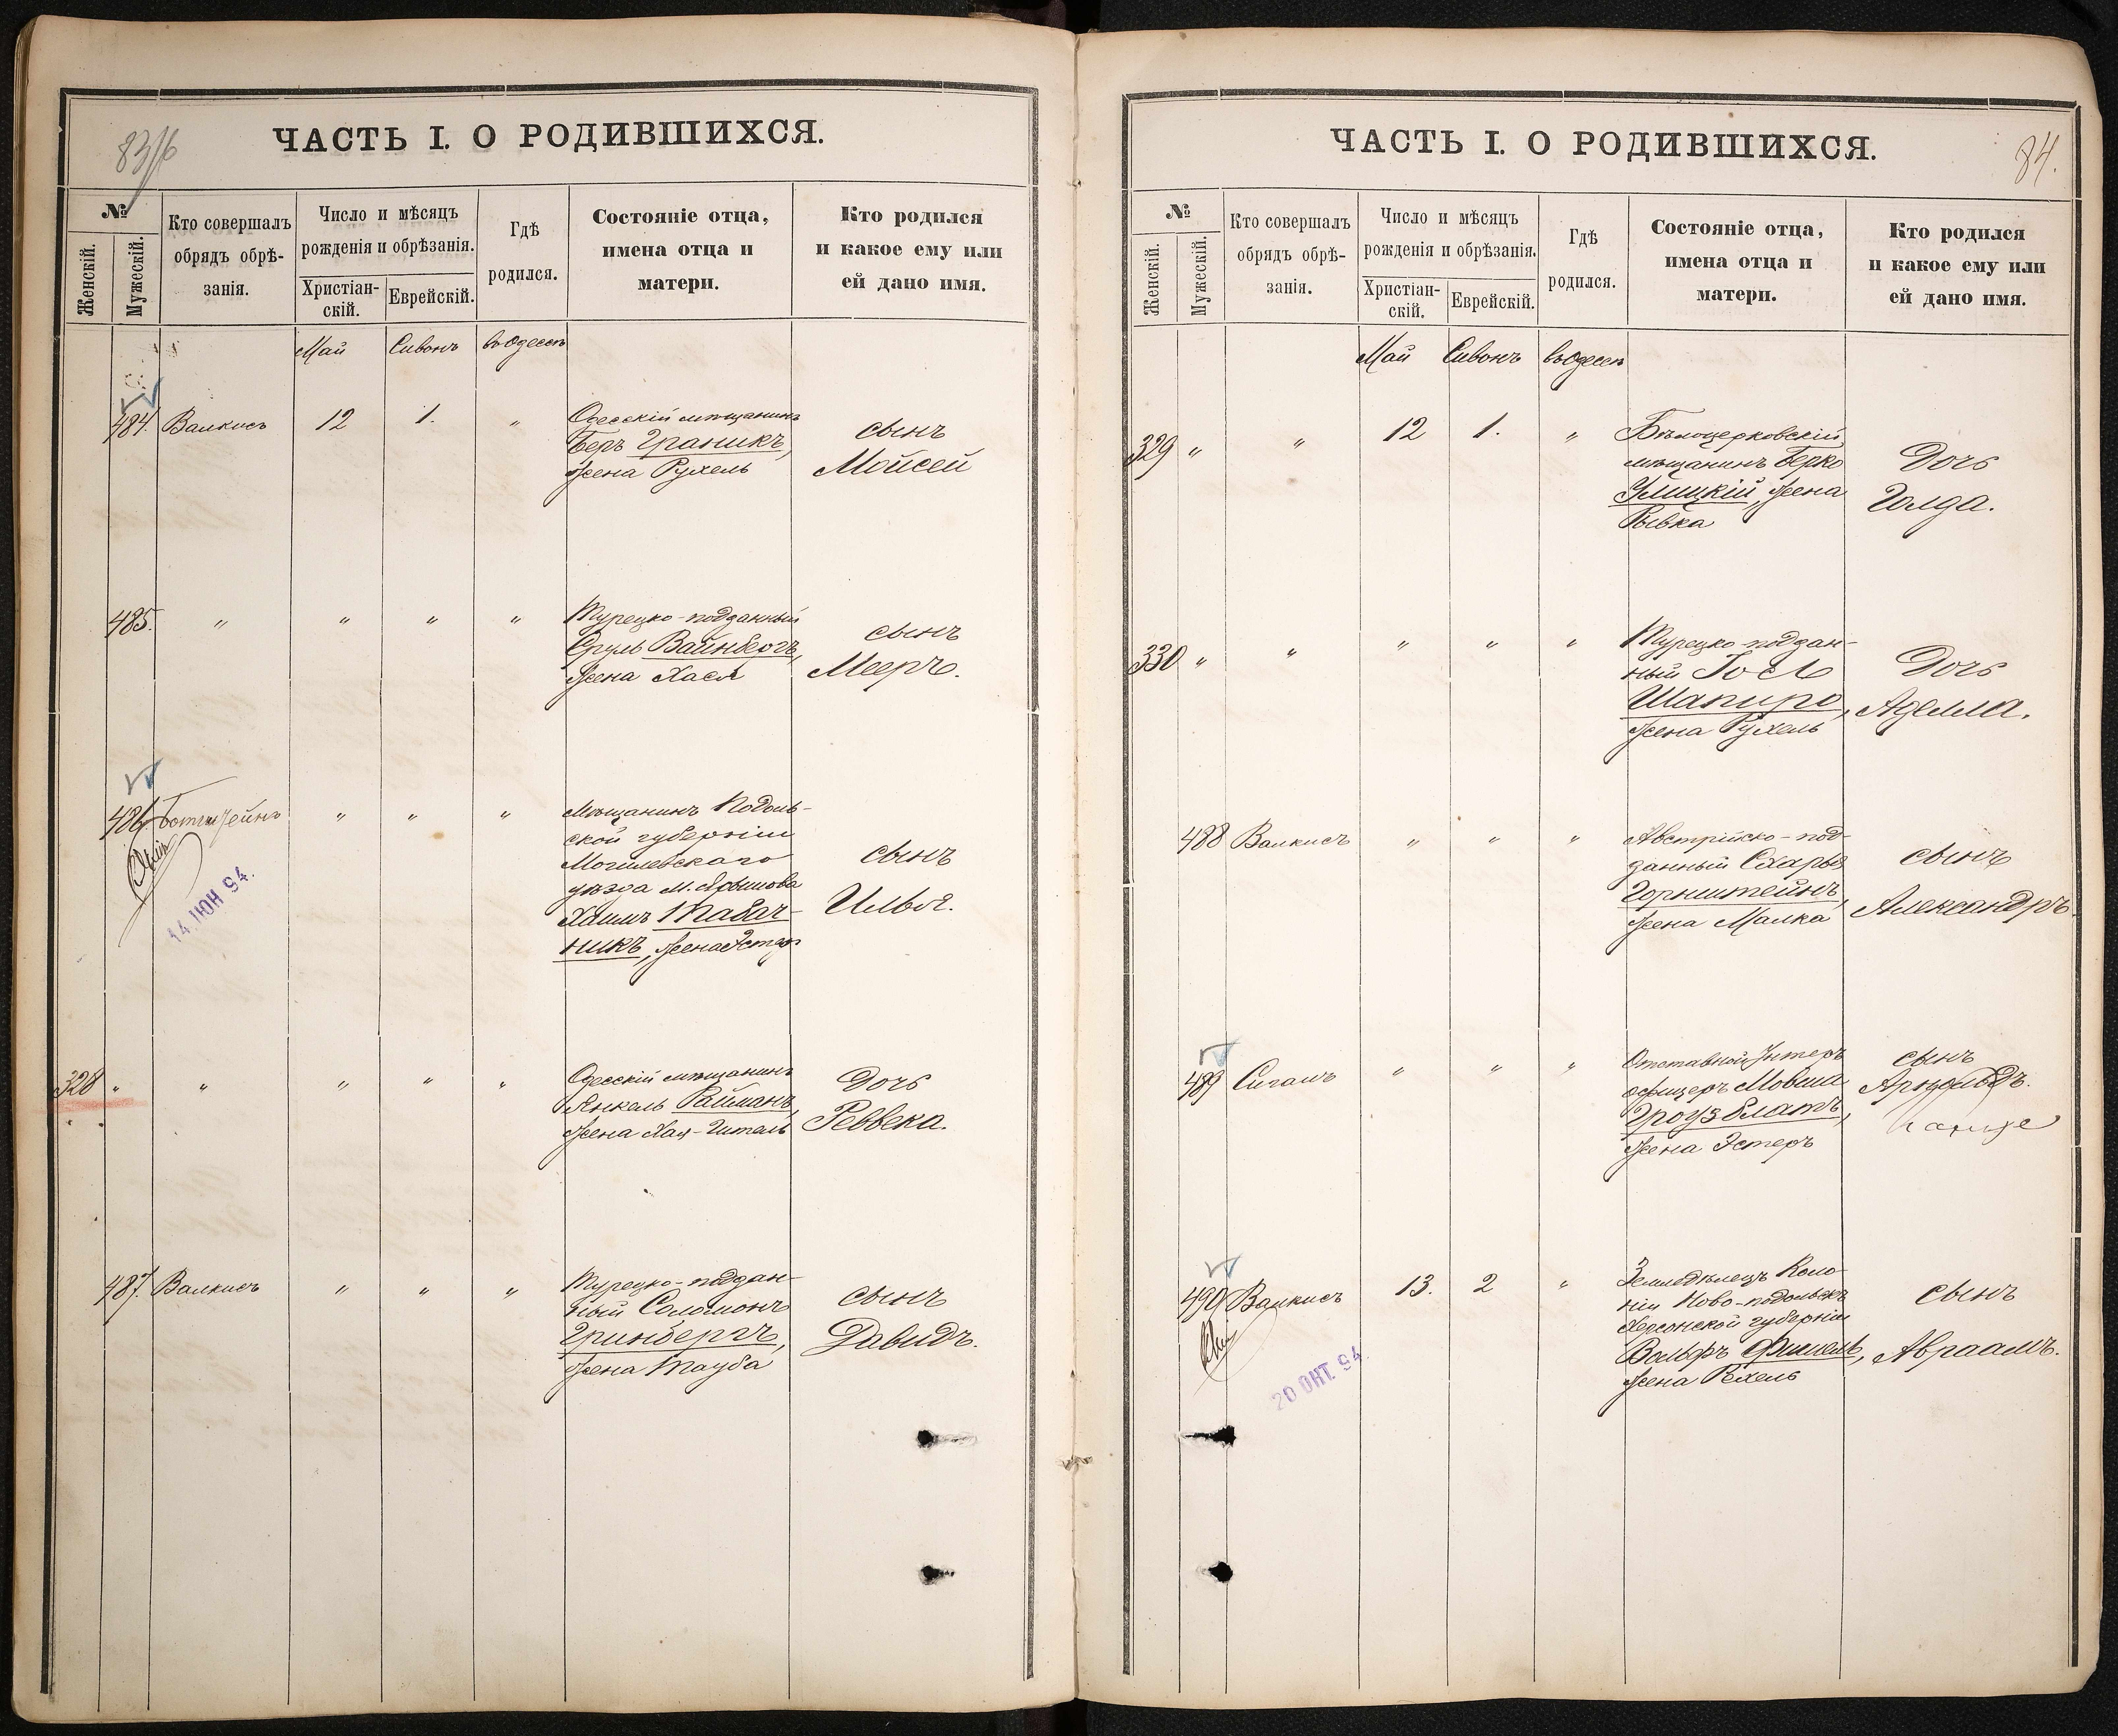 83/16
ЧАСТЬ I. О РОДИВШИХСЯ.
№
Женскій.
Мужескій.
Кто совершалъ
обрядъ обрѣ-
занія.
Число и мѣсяцъ
рожденія и обрѣзанія.
Христіан-
скій.
Еврейскій.
Гдѣ
родился.
Состояніе отца,
имена отца и
матери.
Кто родился
и какое ему или
ей дано имя.
Май Сивонъ въ Одессѣ
484. Валкисъ 12 1. „
Одесскій мѣщанинъ
Беръ Граникъ,
жена Рухель
сынъ
Мойсей
485. „ „ „ „
Турецко-подданный
Сруль Вайнбергъ,
жена Хася
сынъ
Мееръ.
486 „ „ „
14 ІЮН 94.
Мѣщанинъ Подоль-
ской губерніи
Могилевскаго
уѣзда м. Ярышова
Хаимъ Табач-
никъ, жена Эстер
сынъ
Илья.
328 „ „ „ „ „
Одесскій мѣщанинъ
Янкель Райманъ,
жена Хая-Гитель
Дочь
Реввека.
487. Валкисъ „ „ „
Турецко-поддан-
ный Соломонъ
Гринбергъ,
жена Тауба
сынъ
Давидъ.
84.
ЧАСТЬ I. О РОДИВШИХСЯ.
№
Женскій.
Мужескій.
Кто совершалъ
обрядъ обрѣ-
занія.
Число и мѣсяцъ
рожденія и обрѣзанія.
Христіан-
скій.
Еврейскій.
Гдѣ
родился.
Состояніе отца,
имена отца и
матери.
Кто родился
и какое ему или
ей дано имя.
Май Сивонъ въ Одессѣ
329 „ „ 12 1. „
Бѣлоцерковскій
мѣщанинъ Берко
Улицкій, жена
Рывка
Дочь
Голда.
330 „ „ „ „ „
Турецко-поддан-
ный Іосль
Шапиро,
жена Рухель
Дочь
Аделла.
488 Валкисъ „ „ „
Австрійско-под-
данный Схарья
Горнштейнъ,
жена Малка
сынъ
Александръ.
489 Сигалъ „ „ „
Отставной Унтеръ
офицеръ Мовша
Гроузблатъ,
жена Эстеръ
сынъ
Арнольдъ.
490 Валкисъ 13. 2 „
20 ОКТ. 94.
Земледѣлецъ Коло-
ніи Ново-подольскъ
Херсонской губерніи
Вольфъ Фишель,
жена Рехель
сынъ
Авраамъ.